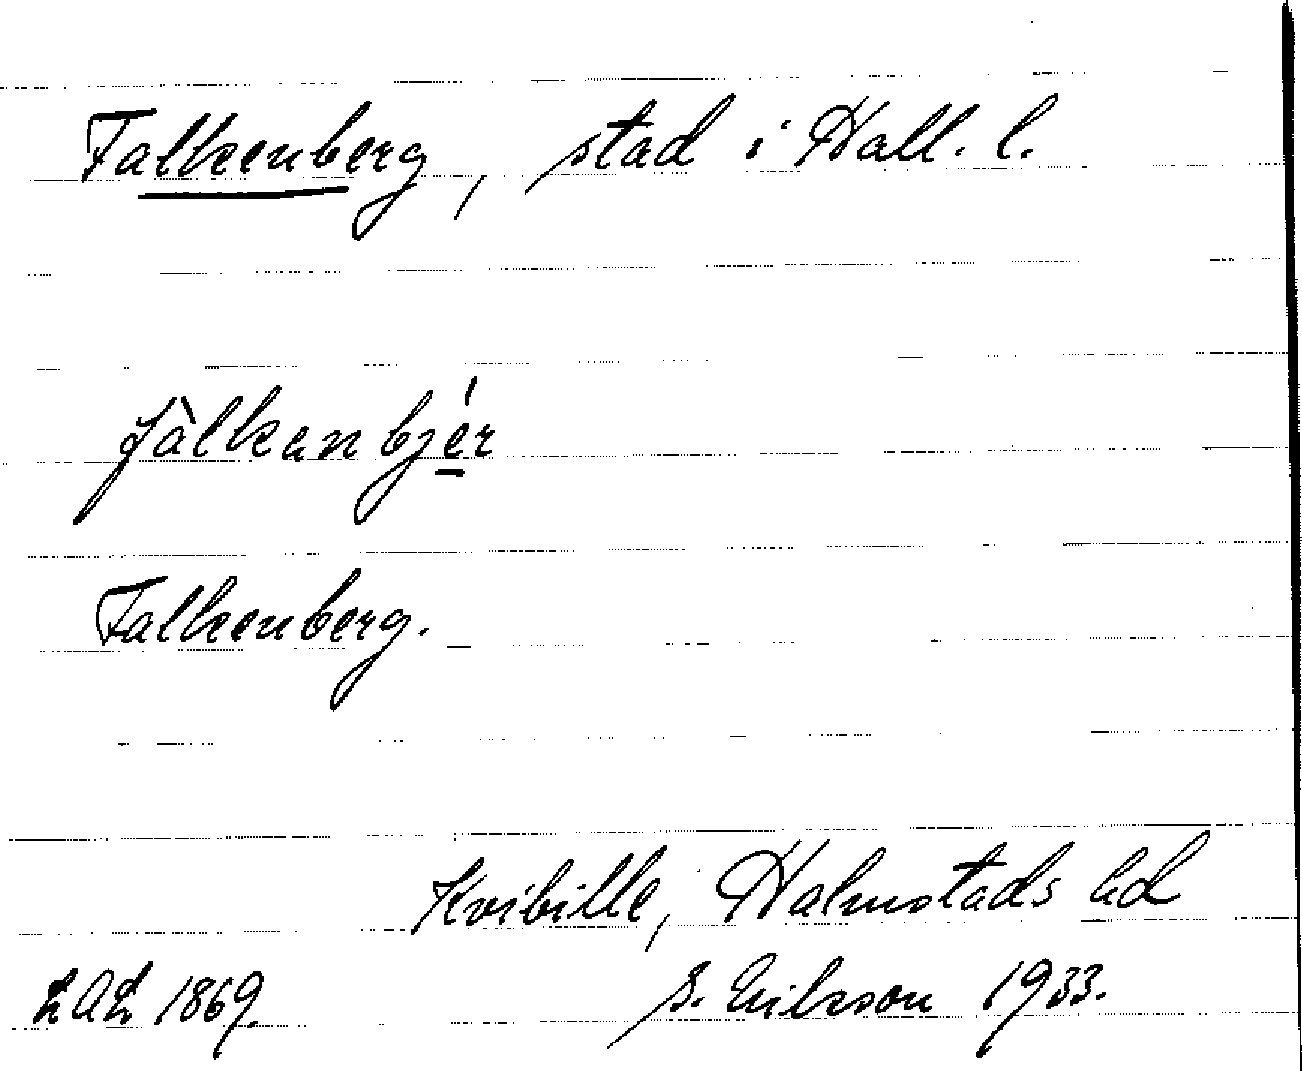 Falkenberg, stad i Hall. l.
fàlkanbjér
Falkenberg.
Kvibille, Halmstads hd
LAL 1869. S. Eriksson 1933.